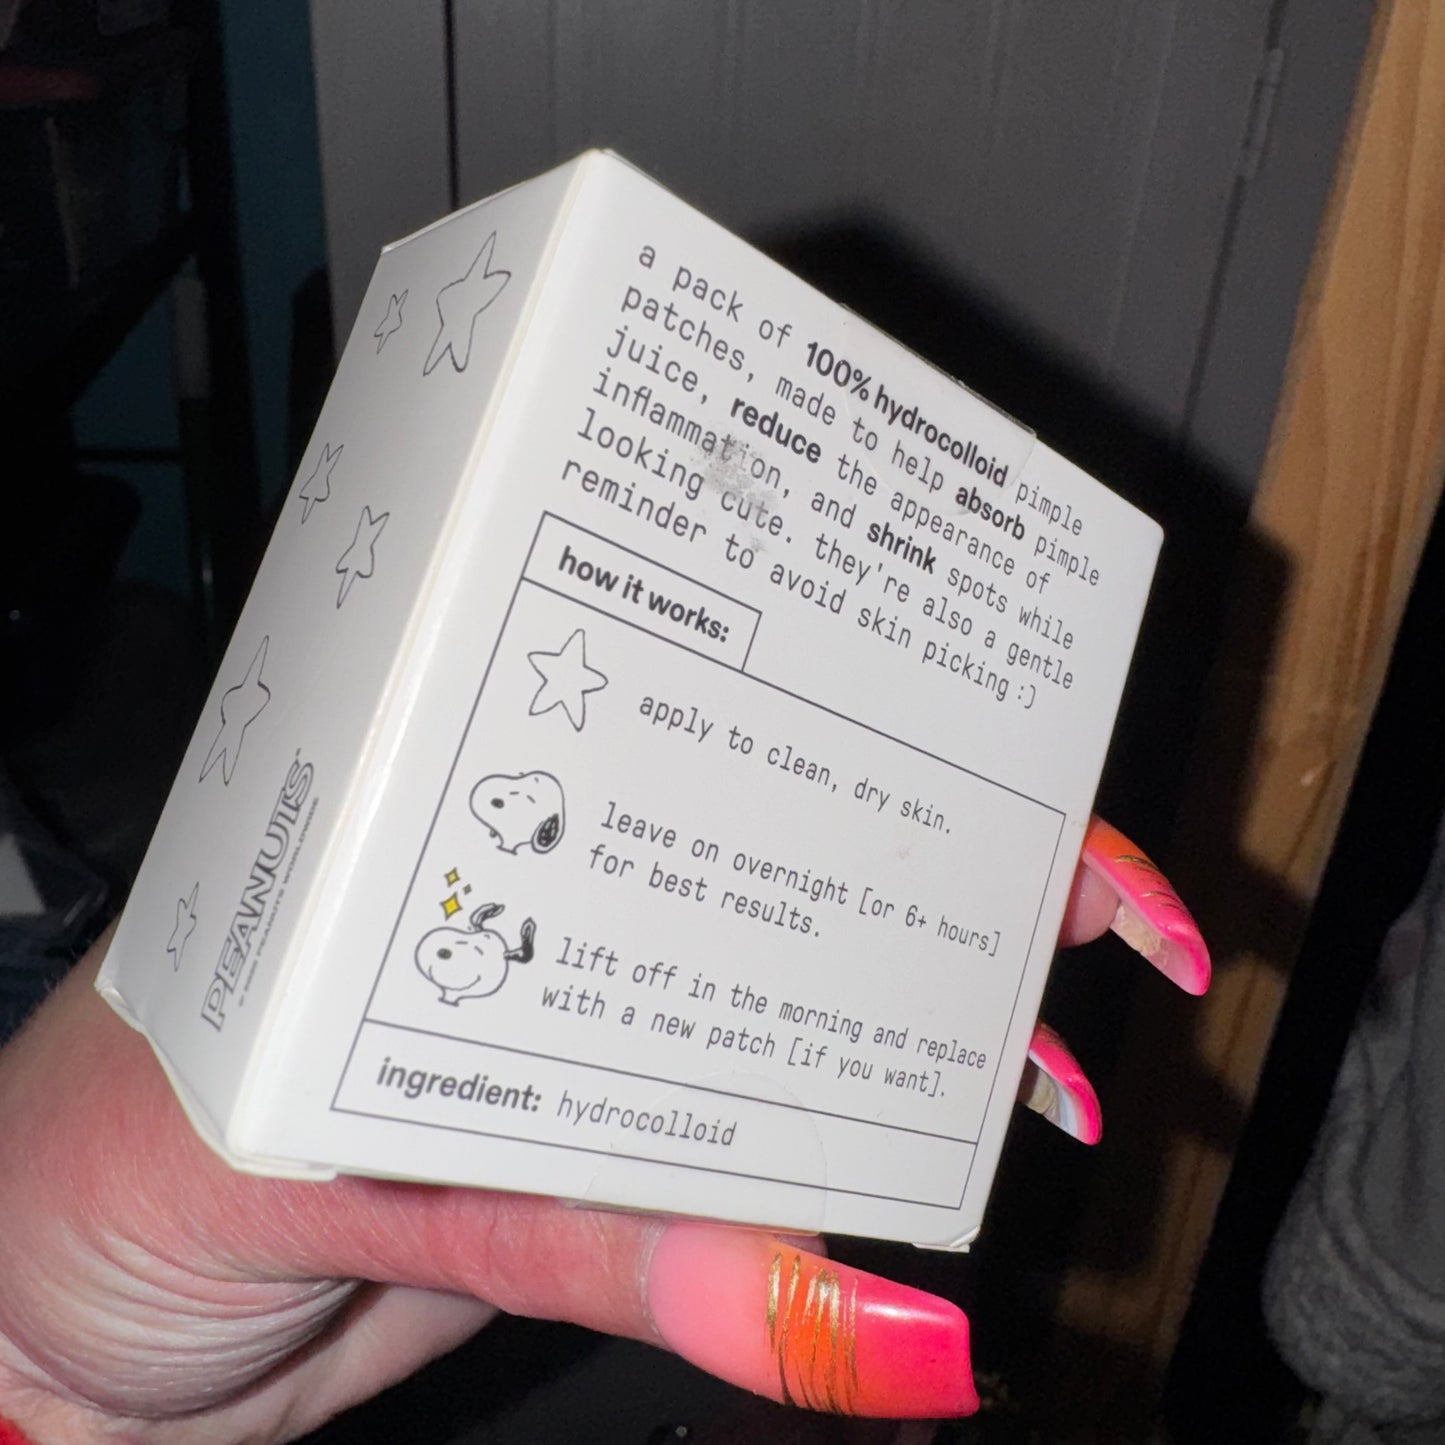 a pack of 100% hydrocolloid pimple
patches, made to help absorb pimple
juice, reduce the appearance of
inflammation, and shrink spots while
looking cute. they're also a gentle
reminder to avoid skin picking :)
how it works:
apply to clean, dry skin.
leave on overnight [or 6+ hours]
for best results.
lift off in the morning and replace
with a new patch [if you want].
ingredient: hydrocolloid
PEANUTS
PEANUTS WORLDWIDE